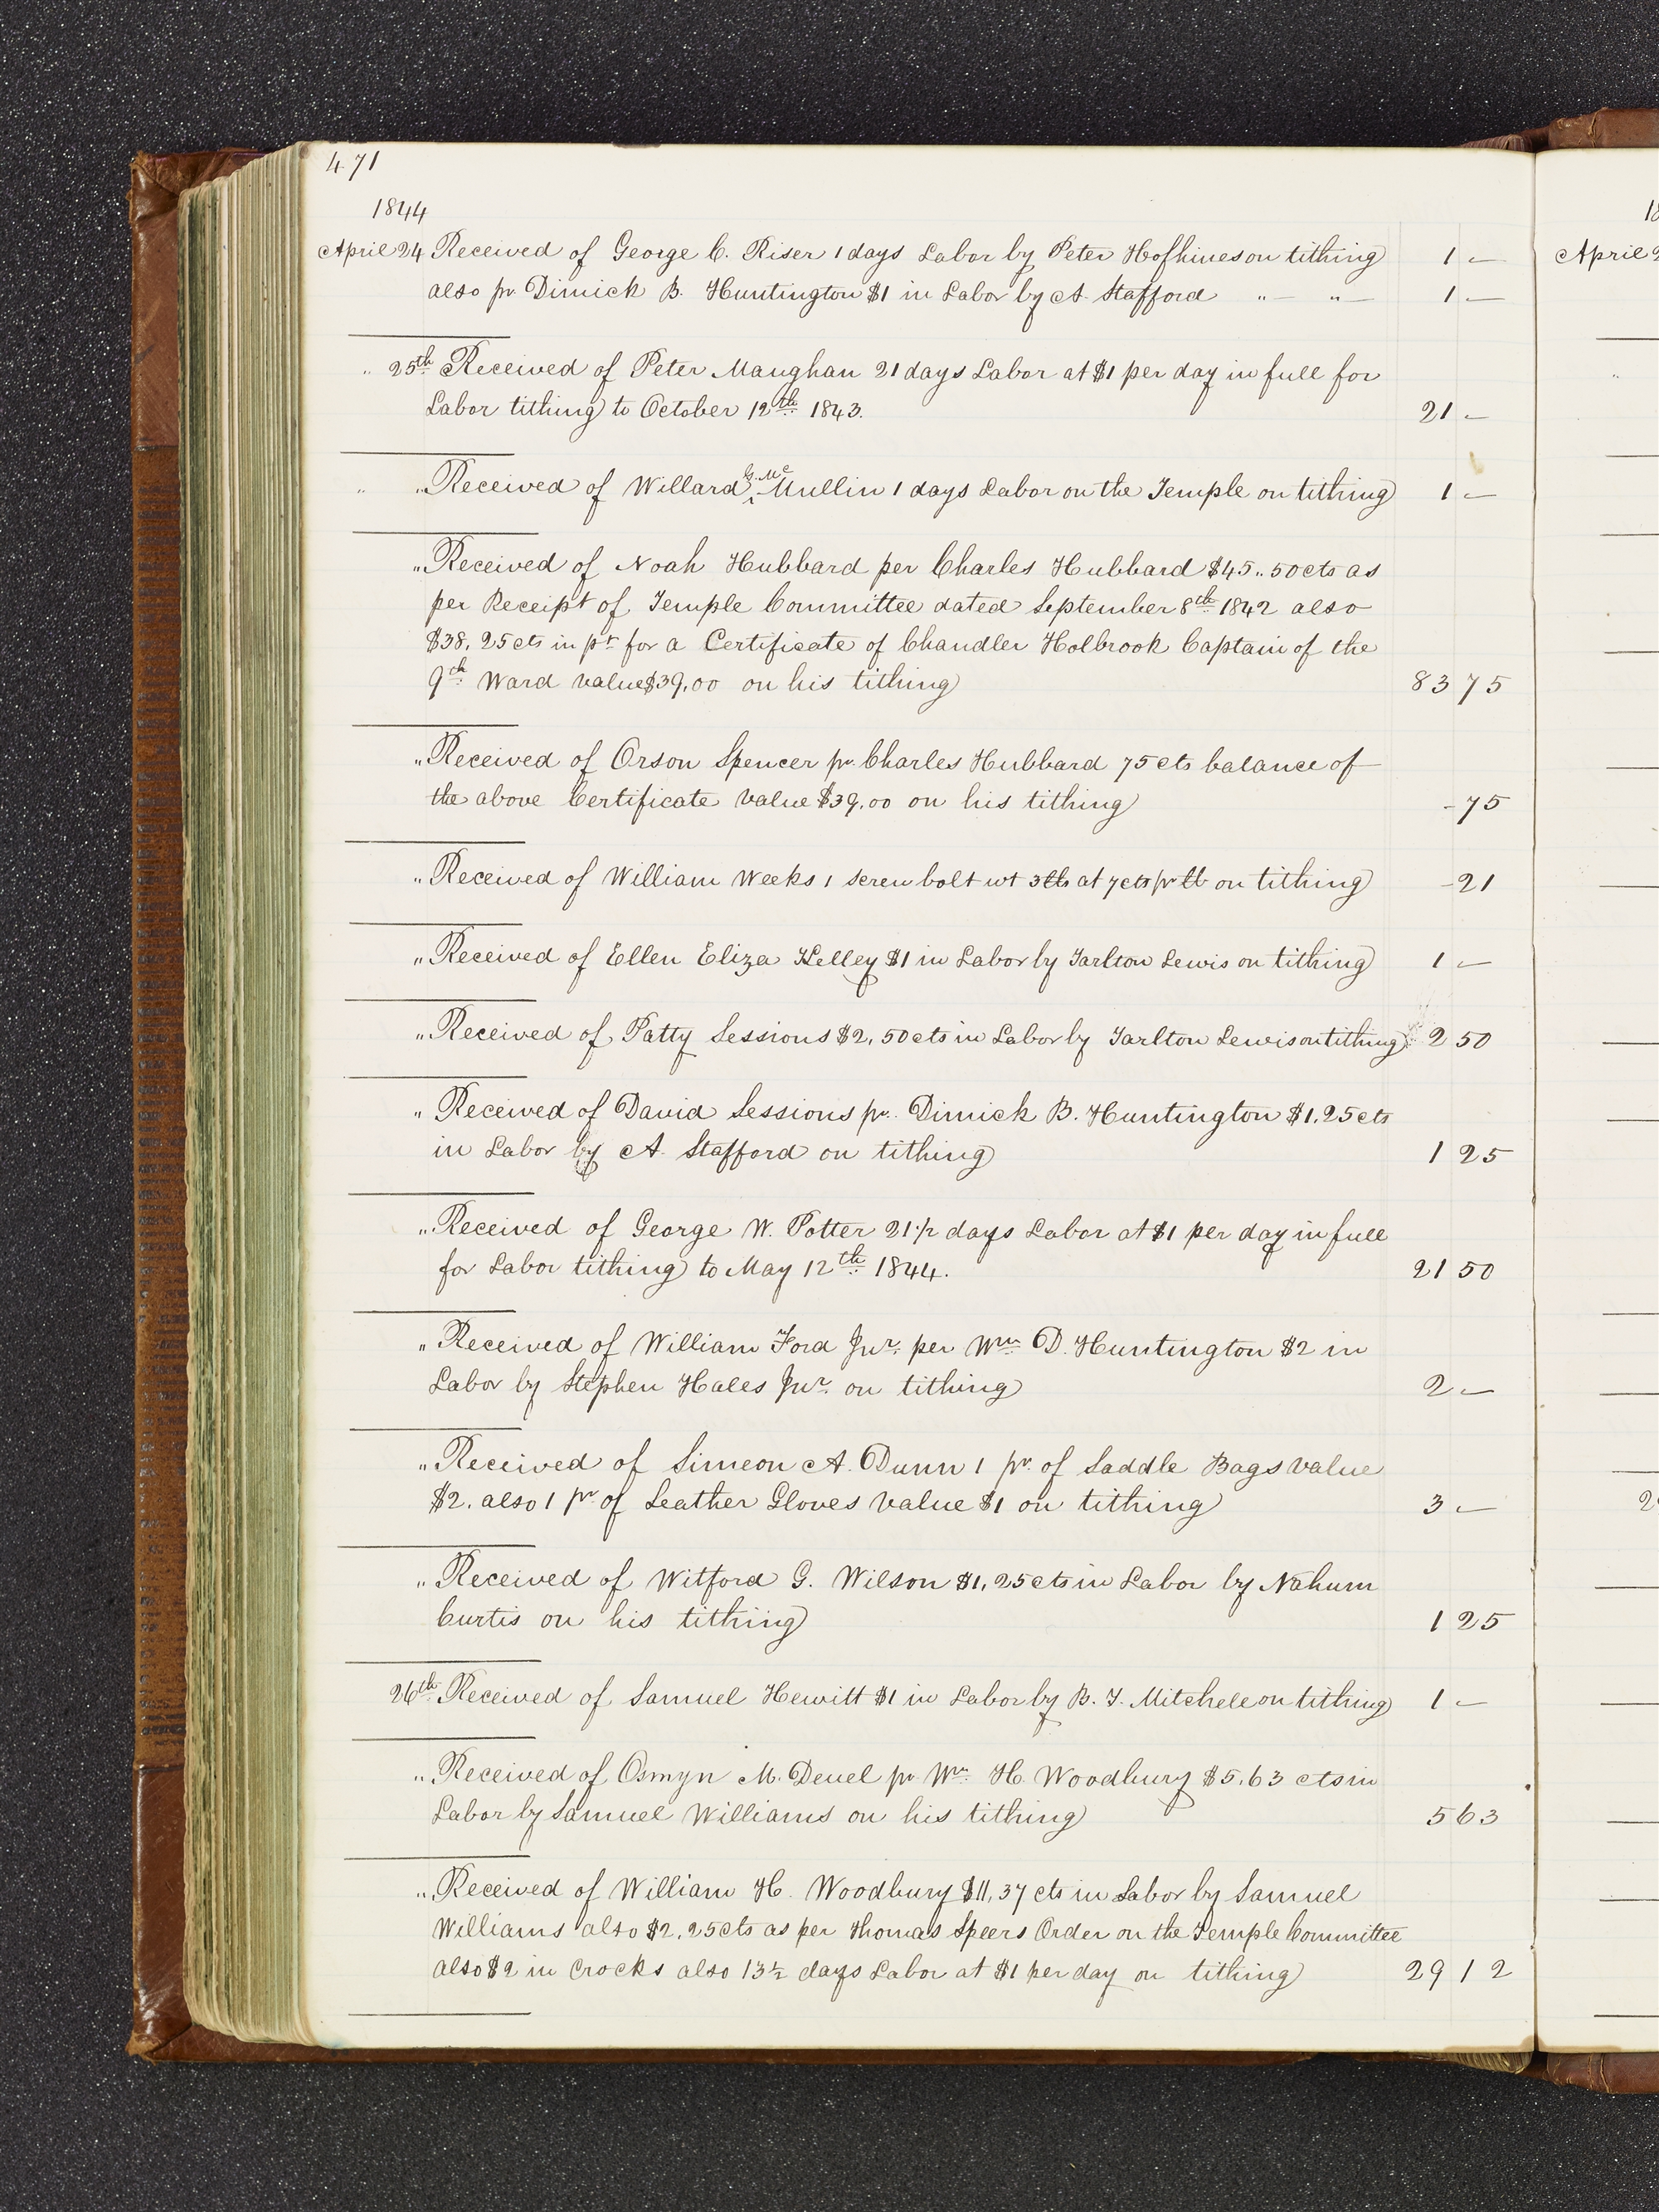 471
1844
April 24 Received of George C. Riser 1 days Labor by Peter Hofhines on tithing 1 —
also pr. Dimick B. Huntington $1 in Labor by A. Stafford " — " — 1 —
" 25th Received of Peter Maughan 21 days Labor at $1 per day in full for
Labor tithing to October 12th 1843. 21 —
" " Received of Willard G. Mc Mullin 1 days Labor on the Temple on tithing 1 —
" Received of Noah Hubbard per Charles Hubbard $45..50 cts as
per Receipt of Temple Committee dated September 8th 1842 also
$38.25 cts in pt for a Certificate of Chandler Holbrook Captain of the
9th Ward value $39.00 on his tithing 83 75
" Received of Orson Spencer pr. Charles Hubbard 75 cts balance of
the above Certificate value $39.00 on his tithing - 75
" Received of William Weeks 1 screw bolt wt 3 lb at 7 cts pr lb on tithing - 21
" Received of Ellen Eliza Kelley $1 in Labor by Tarlton Lewis on tithing 1 —
" Received of Patty Sessions $2.50 cts in Labor by Tarlton Lewis on tithing 2 50
" Received of David Sessions pr. Dimick B. Huntington $1.25 cts
in Labor by A. Stafford on tithing 1 25
" Received of George W. Potter 21 1/2 days Labor at $1 per day in full
for Labor tithing to May 12th 1844. 21 50
" Received of William Ford Junr. per Wm. D. Huntington $2 in
Labor by Stephen Hales Junr. on tithing 2 —
" Received of Simeon A. Dunn 1 pr. of Saddle Bags value
$2. also 1 pr. of Leather Gloves value $1 on tithing 3 —
" Received of Witford G. Wilson $1.25 cts in Labor by Nahum
Curtis on his tithing 1 25
26th. Received of Samuel Hewitt $1 in Labor by B. T. Mitchell on tithing 1 —
" Received of Osmyn M. Deuel pr Wm. H. Woodbury $5.63 cts in
Labor by Samuel Williams on his tithing 5 63
" Received of William H. Woodbury $11.37 cts in Labor by Samuel
Williams also $2.25 cts as per Thomas Speers Order on the Temple Committee
also $2 in Crocks also 13 1/2 days Labor at $1 per day on tithing 29 12
18
April 2
"
2